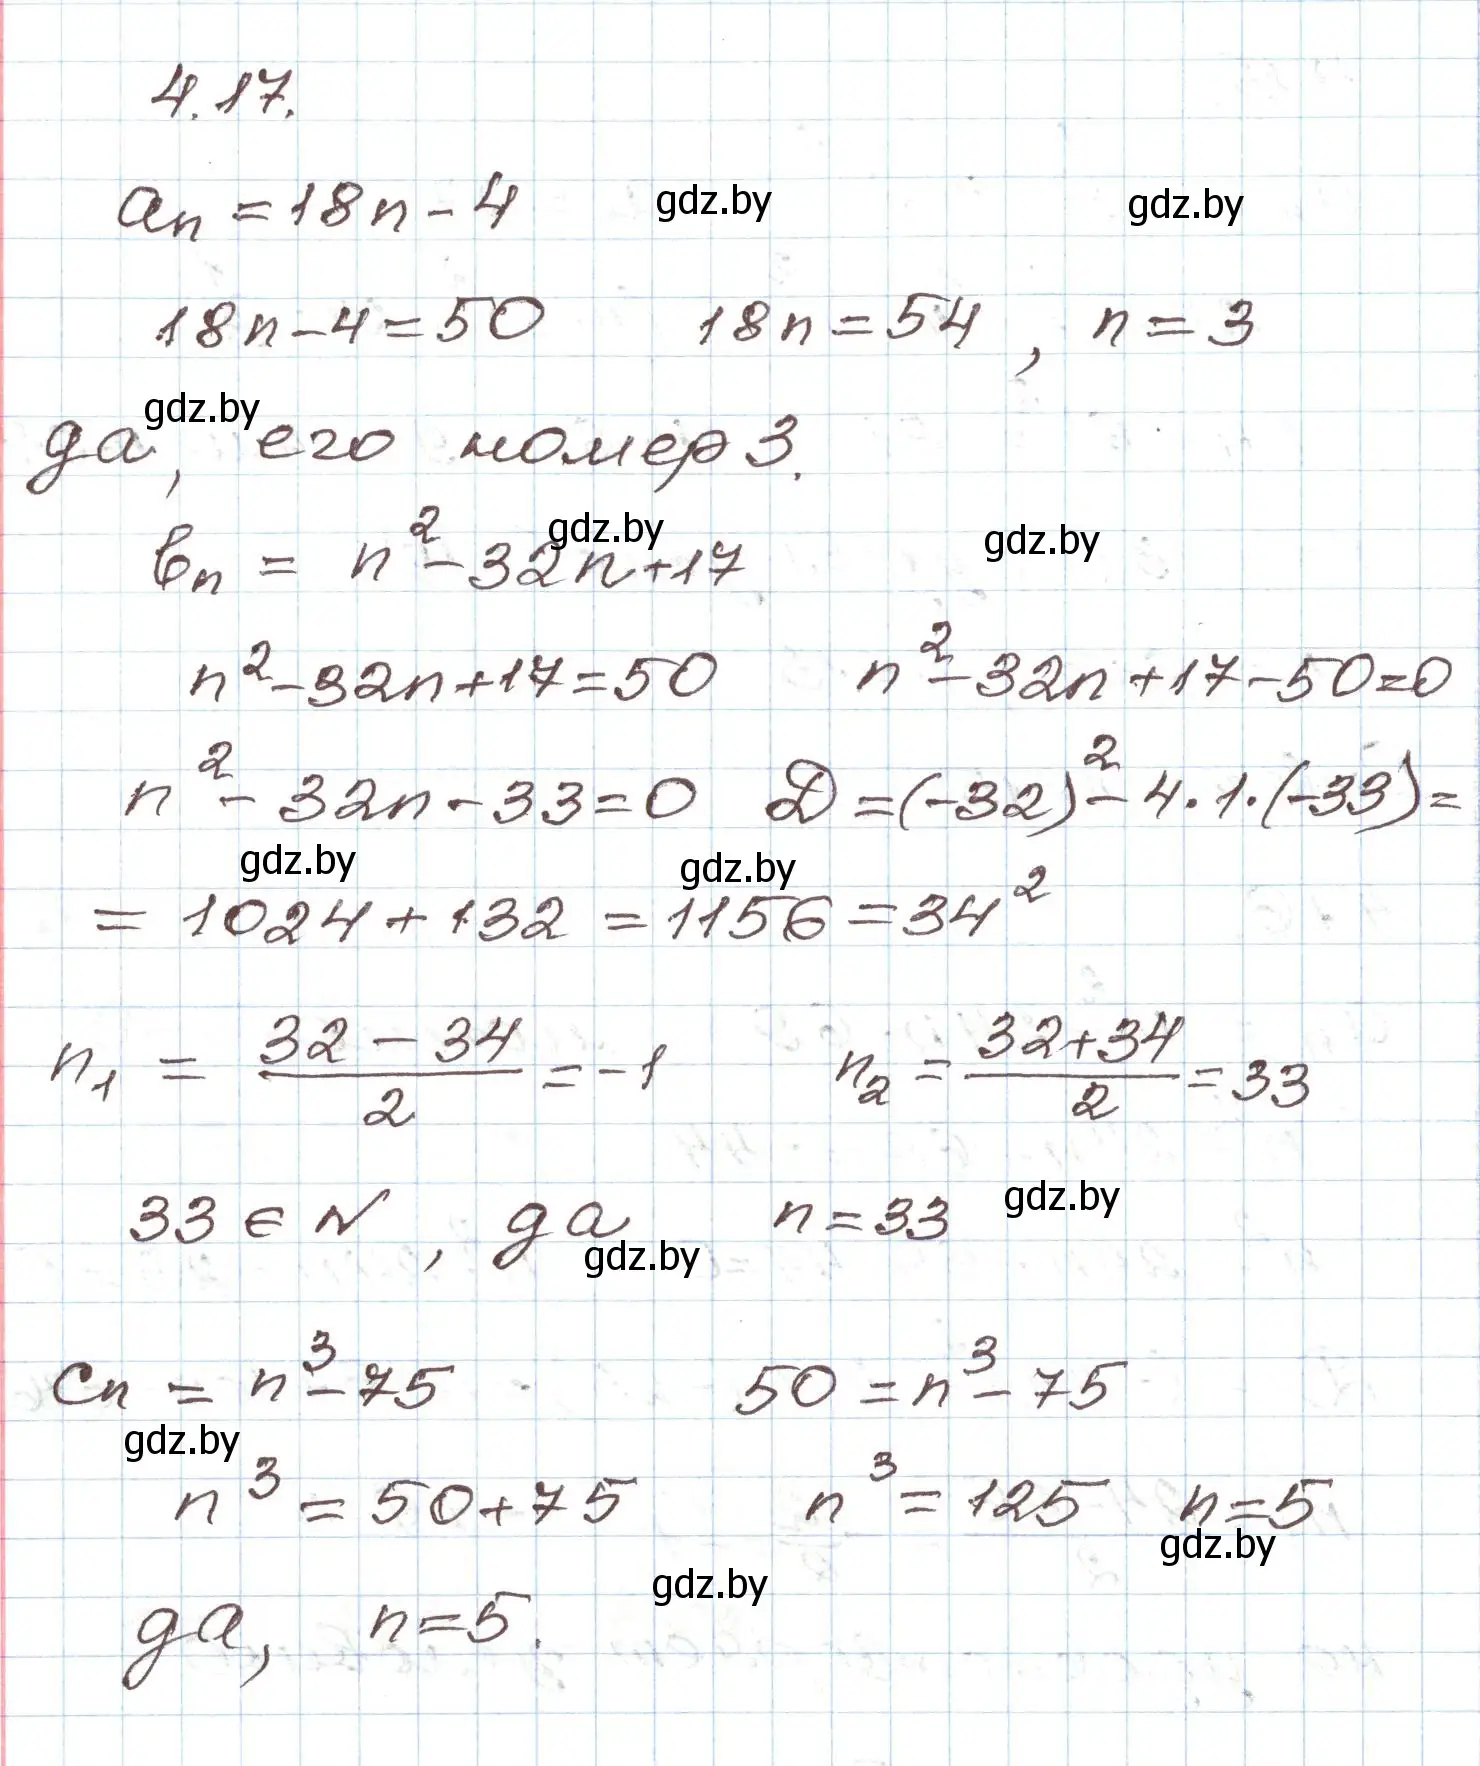 4.17.
aₙ = 18n - 4
gdz.by gdz.by
18n - 4 = 50 18n = 54, n = 3
gdz.by
да, его номер 3.
bₙ = n² - 32n + 17
gdz.by gdz.by
n² - 32n + 17 = 50 n² - 32n + 17 - 50 = 0
n² - 32n - 33 = 0 D = (-32)² - 4·1·(-33) =
gdz.by gdz.by
= 1024 + 132 = 1156 = 34²
n₁ = (32 - 34)/2 = -1 n₂ = (32 + 34)/2 = 33
33 ∈ N, да n = 33
gdz.by gdz.by
cₙ = n³ - 75 50 = n³ - 75
gdz.by
n³ = 50 + 75 n³ = 125 n = 5
gdz.by
gdz.by
да, n = 5.